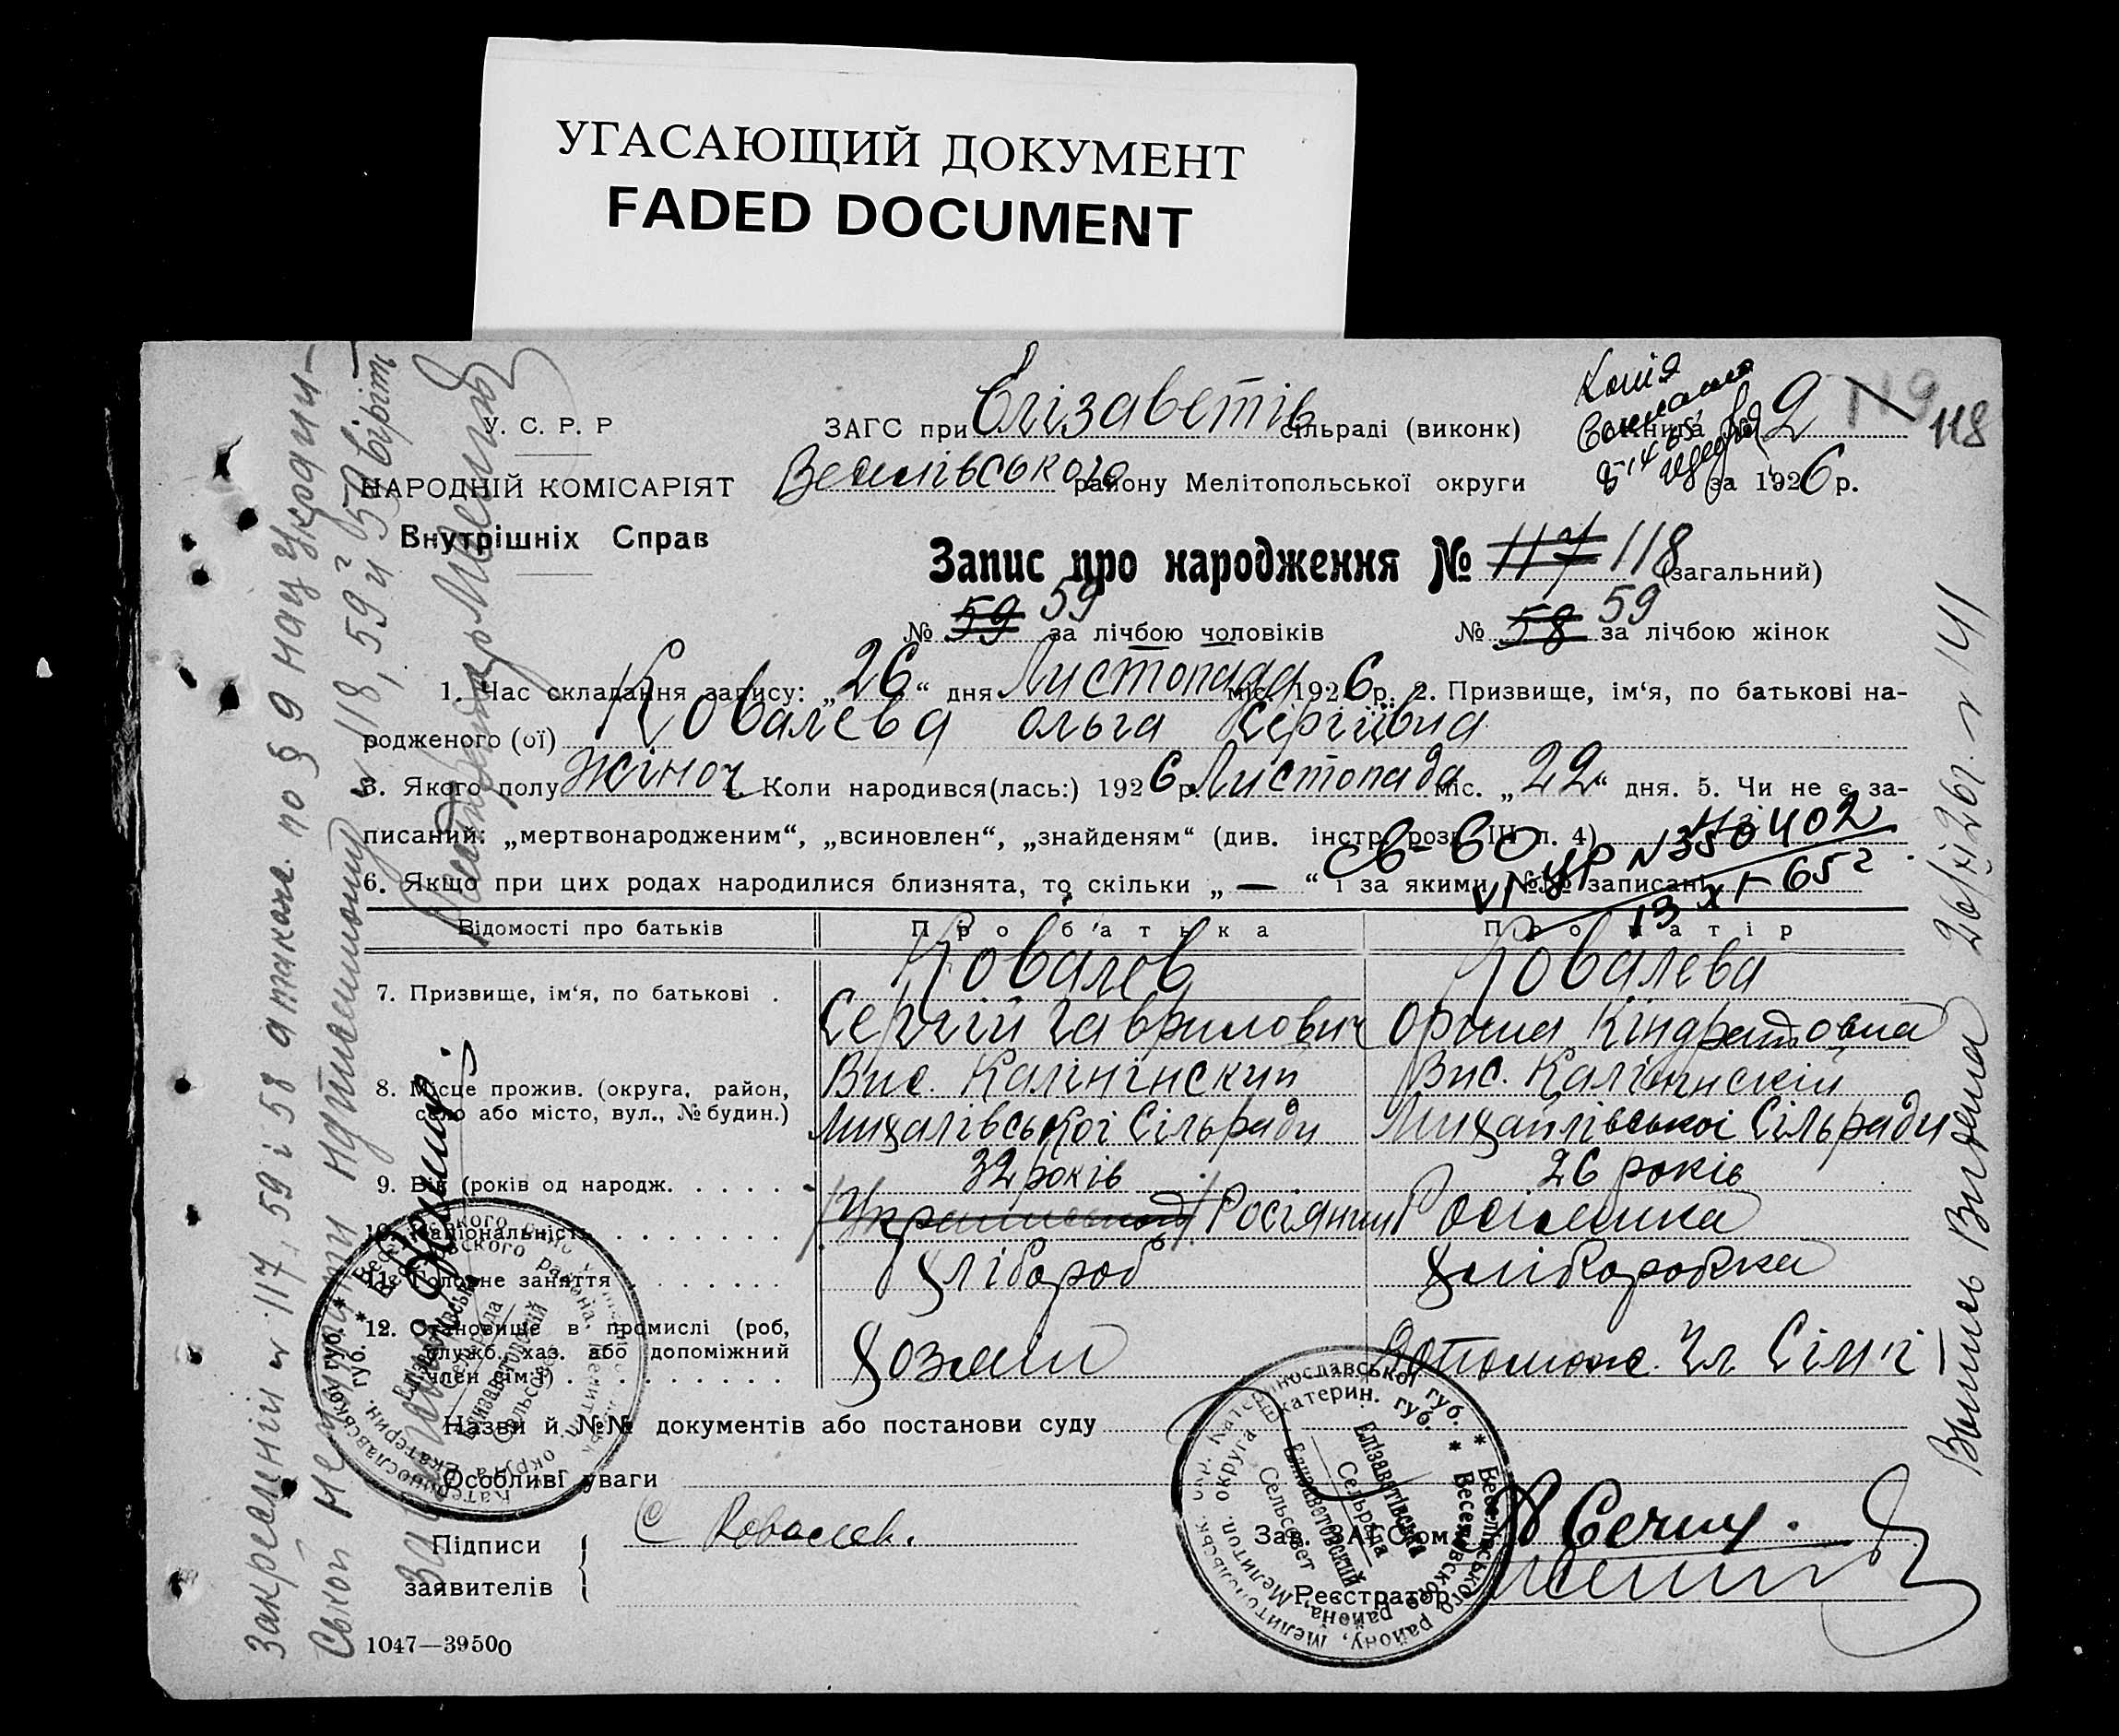 УГАСАЮЩИЙ ДОКУМЕНТ
FADED DOCUMENT
У. С. Р. Р
НАРОДНІЙ КОМІСАРІЯТ
Внутрішніх Справ
ЗАГС при Єлізаветів сільраді (виконк)
Веселівського району Мелітопольської округи
Копія
Книга № 2
118
за 1926 р.
Запис про народження № 117 118 (загальний)
№ 59 59 за лічбою чоловіків № 58 59 за лічбою жінок
1. Час складання запису: „26“ дня Листопада міс. 1926 р. 2. Призвище, ім‘я, по батькові на-
родженого (ої) Ковалева Ольга Сергіївна
3. Якого полу жіноч 4. Коли народився(лась:) 1926 р. Листопада міс. „22“ дня. 5. Чи не є за-
писаний: „мертвонародженим“, „всиновлен“, „знайденям“ (див. інстр. розд. III п. 4)
6. Якщо при цих родах народилися близнята, то скільки „—“ і за якими №№ записані
Св-во
VI УР N 350402
13 XI-65 г
Відомості про батьків Про батька Про матір
7. Призвище, ім‘я, по батькові . Ковалев Ковалева
Сергій Гаврилович Орина Кіндратовна
8. Місце прожив. (округа, район, село або місто, вул., № будин.) Вис. Калінінский Вис. Калінинскій
Михалівської Сільради Михайлівської Сільради
9. Вік (років од народж. . . . . . 32 років 26 років
10. Національність . . . . . . . . Росіянин Росіянка
11. Головне заняття . . . . . . . Хлібороб Хліборобка
12. Становище в промислі (роб, служб. хаз. або допоміжний член сім‘ї) . . . . . . . . . Хозяїн Допомож. Чл. Сім'ї
Назви й №№ документів або постанови суду
Особливі уваги
Підписи
заявителів
С Ковалев.
Зав. ЗАГС‘ом
Реєстратор
1047—39500
Випись Видана 26/XI 26 г. N 141